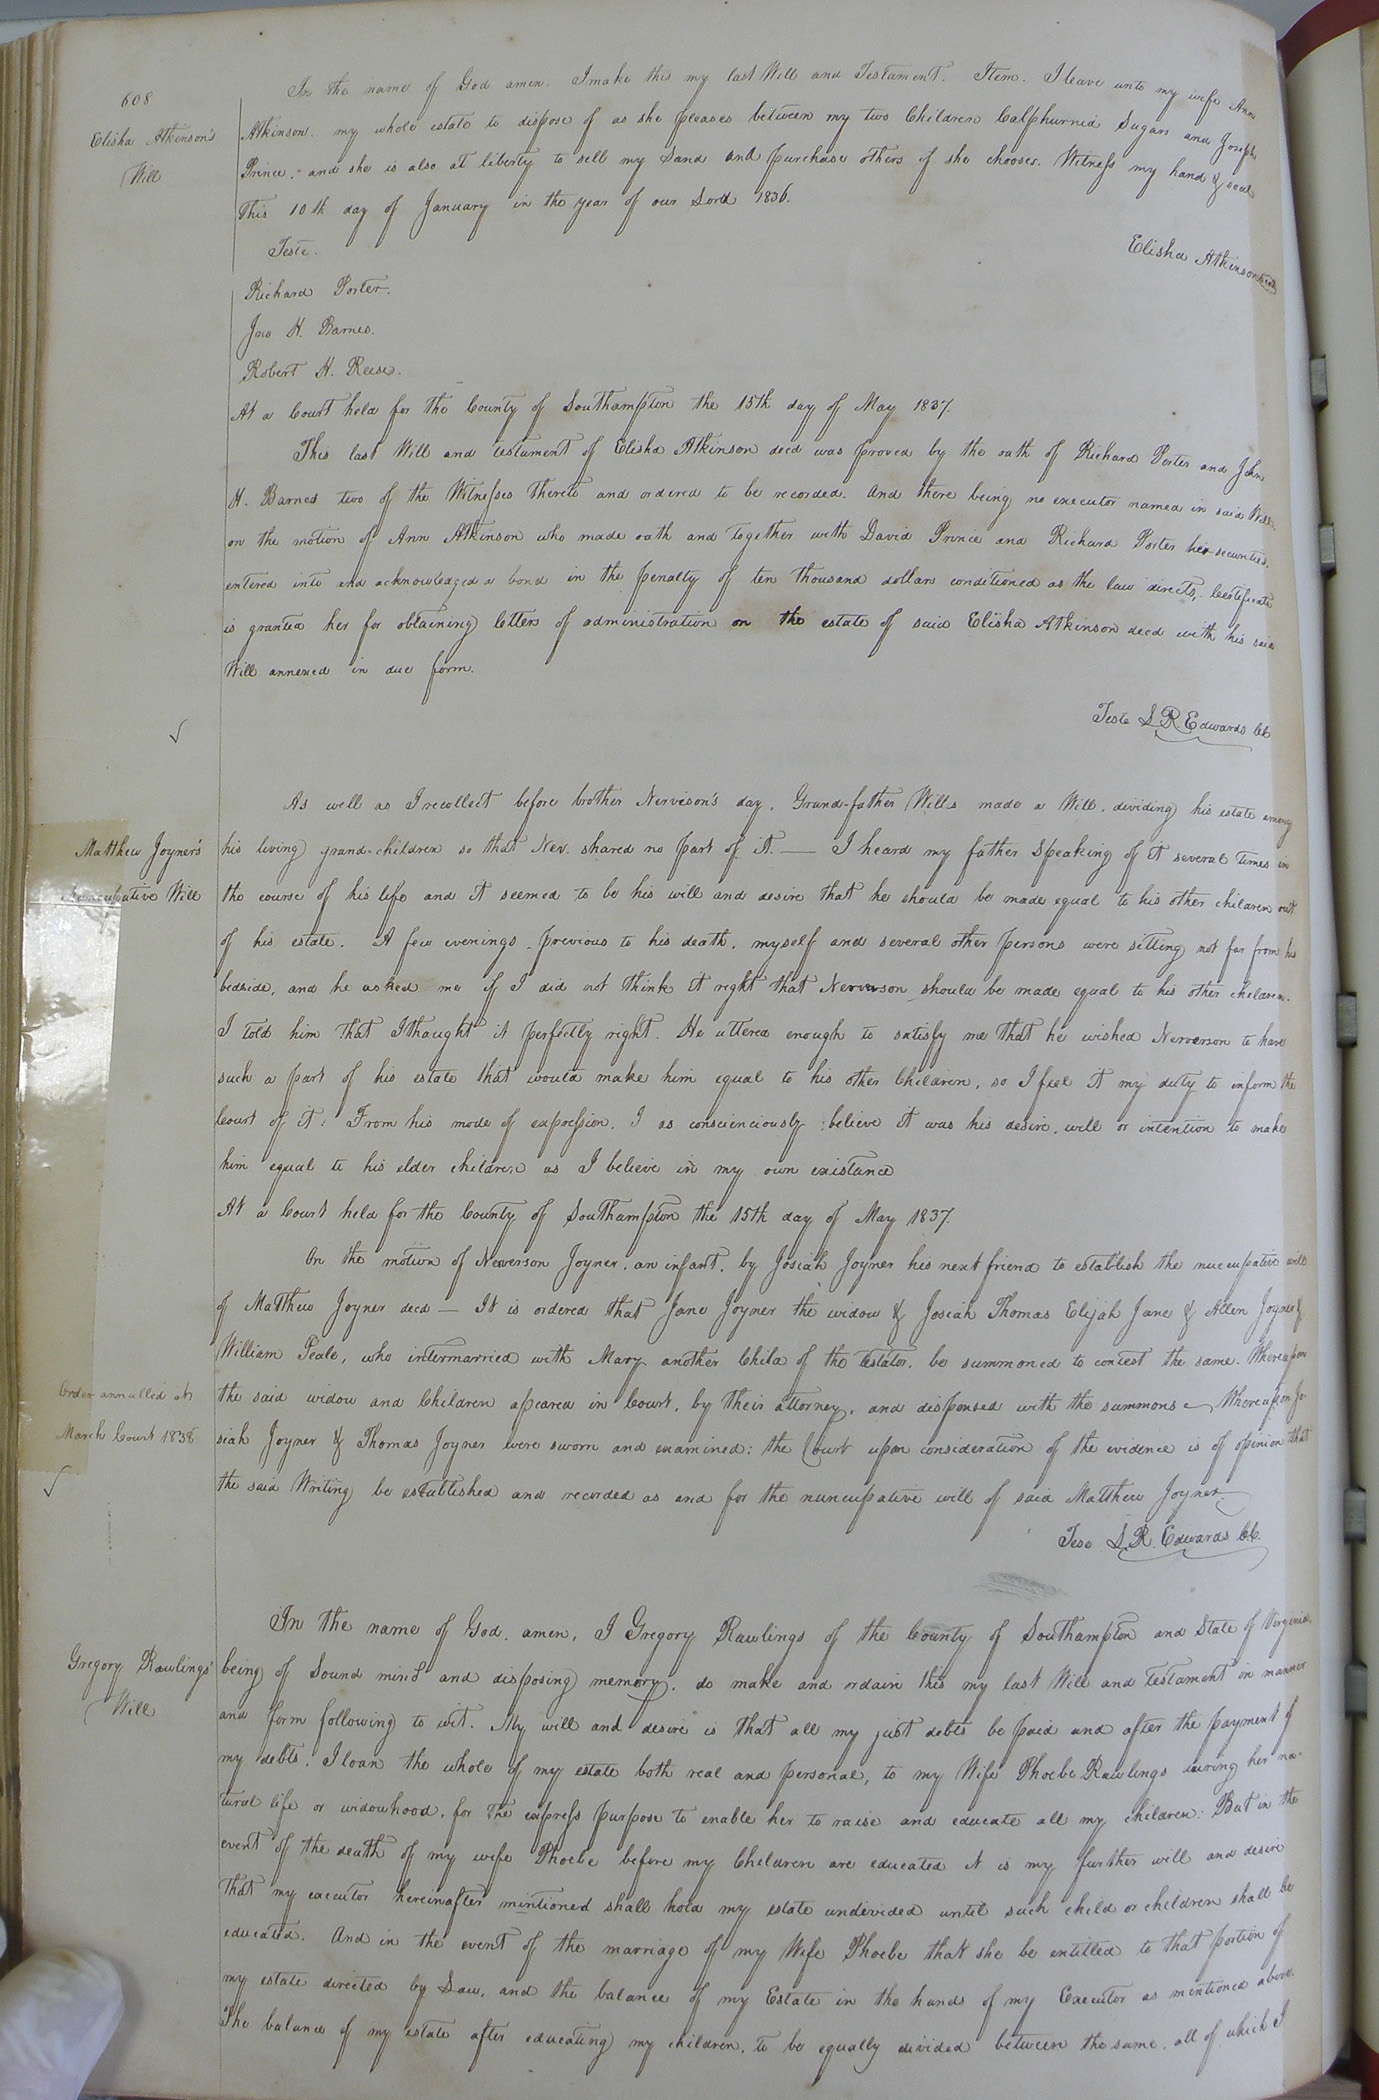 608
In the name of God amen. I make this my last Will and Testament. Item. I leave unto my wife Ann
Elisha Atkinson's
Will
Atkinson my whole estate to dispose of as she pleases between my two Children Calphurnia Sugars and Joseph
Prince, and she is also at liberty to sell my Land and purchase others if she chooses. Witness my hand & seal
This 10th day of January in the year of our Lord 1836.
Teste.
Elisha Atkinson seal
Richard Porter.
Jno H. Barnes.
Robert H. Reese.
At a Court held for the County of Southampton the 15th day of May 1837.
This last Will and testament of Elisha Atkinson decd was proved by the oath of Richard Porter and John
H. Barnes two of the Witnesses thereto and ordered to be recorded. And there being no executor named in said Will
on the motion of Ann Atkinson who made oath and together with David Prince and Richard Porter her securities,
entered into and acknowledged a bond in the penalty of ten thousand dollars conditioned as the law directs, Certificate
is granted her for obtaining letters of administration on the estate of said Elisha Atkinson decd with his said
Will annexed in due form.
Teste L R Edwards CC
As well as I recollect before brother Nerverson's day, Grand-father Wills made a Will, dividing his estate among
Matthew Joyner's
Nuncupative Will
his living grand-children so that Nev. shared no part of it. — I heard my father Speaking of it several times in
the course of his life and it seemed to be his will and desire that he should be made equal to his other children out
of his estate. A few evenings previous to his death, myself and several other persons were sitting not far from his
bedside, and he asked me if I did not think it right that Nerverson should be made equal to his other children.
I told him that I thought it perfectly right. He uttered enough to satisfy me that he wished Nerverson to have
such a part of his estate that would make him equal to his other Children, so I feel it my duty to inform the
Court of it: From his mode of expression, I as consciensiously believe it was his desire, will or intention to make
him equal to his elder children as I believe in my own existance
At a Court held for the County of Southampton the 15th day of May 1837.
On the motion of Neverson Joyner, an infant, by Josiah Joyner his next friend to establish the nuncupative will
of Matthew Joyner decd — It is ordered that Jane Joyner the widow & Josiah Thomas Elijah Jane & Allen Joyner &
William Peale, who intermarried with Mary another Child of the testator, be summoned to contest the same. Whereupon
Order annulled at
March Court 1838
the said widow and Children apeared in Court, by their attorney, and dispensed with the summons — Whereupon Jo-
siah Joyner & Thomas Joyner were sworn and examined: the Court upon consideration of the evidence is of opinion that
the said Writing be established and recorded as and for the nuncupative will of said Matthew Joyner.
Teste L. R. Edwards CC.
In the name of God, amen, I Gregory Rawlings of the County of Southampton and State of Virginia
Gregory Rawlings'
Will
being of Sound mind and disposing memory, do make and ordain this my last Will and testament in manner
and form following to wit. My will and desire is that all my just debts be paid and after the payment of
my debts, I loan the whole of my estate both real and personal, to my Wife Phoebe Rawlings during her na-
tural life or widowhood, for the express purpose to enable her to raise and educate all my children: But in the
event of the death of my wife Phoebe before my Children are educated it is my further will and desire
that my executor hereinafter mintioned shall hold my estate undivided until such child or children shall be
educated. And in the event of the marriage of my Wife Phoebe that she be entitled to that portion of
my estate directed by Law, and the balance of my Estate in the hands of my Executor as mintioned above.
The balance of my estate after educating my children, to be equally divided between the same, all of which I